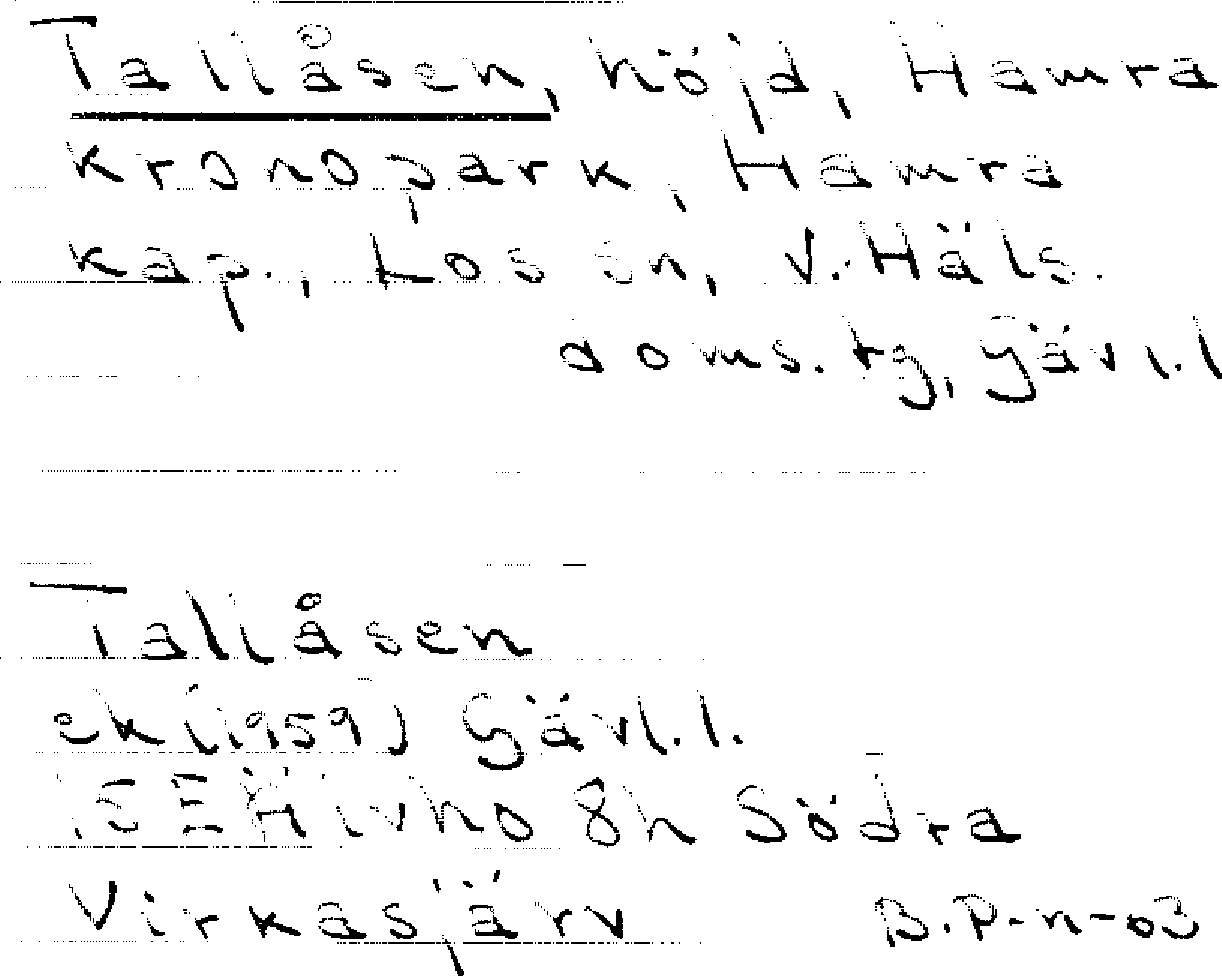 Tallåsen, höjd, Hamra
kronopark, Hamra
kap., Los sn, V. Häls.
doms. tg, Gävl. l
Tallåsen
ek (1959) Gävl. l.
8h Södra
Virkasjärv B.P-n-03